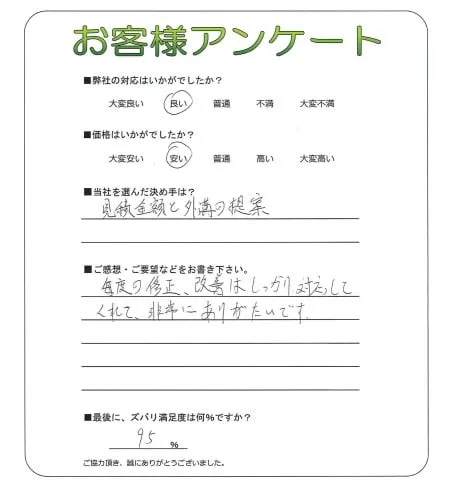 お客様アンケート
■弊社の対応はいかがでしたか?
大変良い 良い 普通 不満 大変不満
■価格はいかがでしたか?
大変安い 安い 普通 高い 大変高い
■当社を選んだ決め手は?
見積金額と外溝の提案
■ご感想・ご要望などをお書き下さい。
毎度の修正、改善はしっかり対応して
くれて、非常にありがたいです。
■最後に、ズバリ満足度は何%ですか?
95 %
ご協力頂き、誠にありがとうございました。